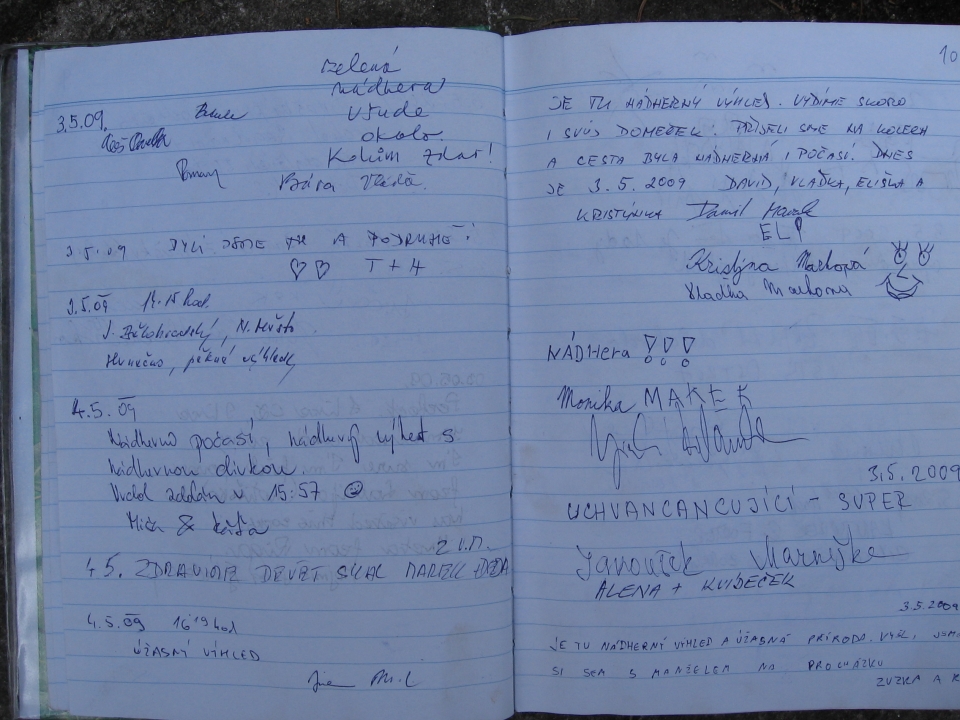 zelená
nádhera
všude
okolo
Kolům zdar!
Bára Vláďa.
3.5.09.
3.5.09 BYLI JSME TU A PODRUHÉ!
T + H
3.5.09 14.15 hod.
J. Bělohradský, N.
Slunečno, pěkné výhledy
4.5.09
Nádherné počasí, nádherný výhled s
nádhernou dívkou.
15:57
Míša & Káťa
4.5. ZDRAVÍME DEVĚT SKAL MAREK
4.5.09 16 19 hod
ÚŽASNÝ VÝHLED
10
JE TU NÁDHERNÝ VÝHLED. VIDÍME SKORO
I SVŮJ DOMEČEK! PŘIJELI SME NA KOLECH
A CESTA BYLA NÁDHERNÁ I POČASÍ. DNES
JE 3.5.2009 DAVID, VLAĎKA, ELIŠKA A
KRISTÝNKA
ELI
Kristýna Marková
Vlaďka Marková
NÁDHera !!!
Monika MAREK
3.5.2009
UCHVANCANCUJÍCÍ - SUPER
Janoušek
ALENA + KVÍDEČEK
3.5.2009
JE TU NÁDHERNÝ VÝHLED A ÚŽASNÁ PŘÍRODA.
SI SEM S MANŽELEM NA PROCHÁZKU
ZUZKA A